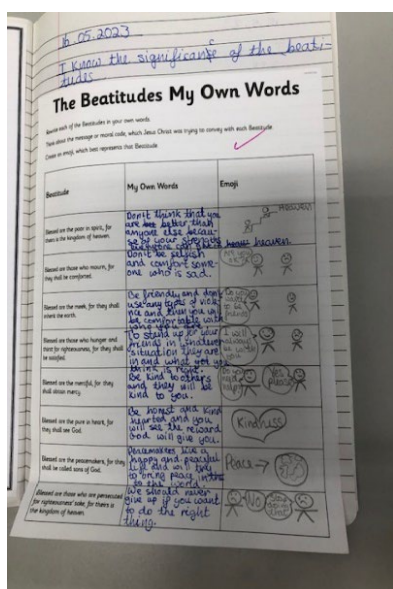 16.05.2023
I know the significance of the beati-
tudes
The Beatitudes My Own Words
Rewrite each of the Beatitudes in your own words.
Think about the message or moral code, which Jesus Christ was trying to convey with each Beatitude.
Create an emoji, which best represents that Beatitude
Beatitude
My Own Words
Emoji
Blessed are the poor in spirit, for
theirs is the kingdom of heaven.
Don't think that you
are better than
anyone else becau-
se of your strengths
heaven.
heaven
Blessed are those who mourn, for they
shall be comforted.
Don't be selfish
and comfort some-
one who is sad.
Are you
ok?
Blessed are the meek, for they shall
inherit the earth.
Be friendly and don't
use any types of viole-
nce and then you will
be comfortable with
who you are.
Do you
want
to be
friends
Blessed are those who hunger and
thirst for righteousness, for they shall
be satisfied.
To stand up for your
friends in whatever
situation they are
in and what you
think is right.
I will
always
be with
you
Blessed are the merciful, for they
shall obtain mercy.
Be kind to others
and they will be
kind to you.
Do you
need
help?
Yes
please
Blessed are the pure in heart, for
they shall see God.
Be honest and kind
hearted and you
will see the reward
God will give you.
Kindness
Blessed are the peacemakers, for they
shall be called sons of God.
Peacemakers live a
happy and peaceful
life and will try
to bring peace in
to the world.
Peace →
Blessed are those who are persecuted
for righteousness' sake for theirs is
the kingdom of heaven.
We should never
give up if you want
to do the right
thing.
No
that